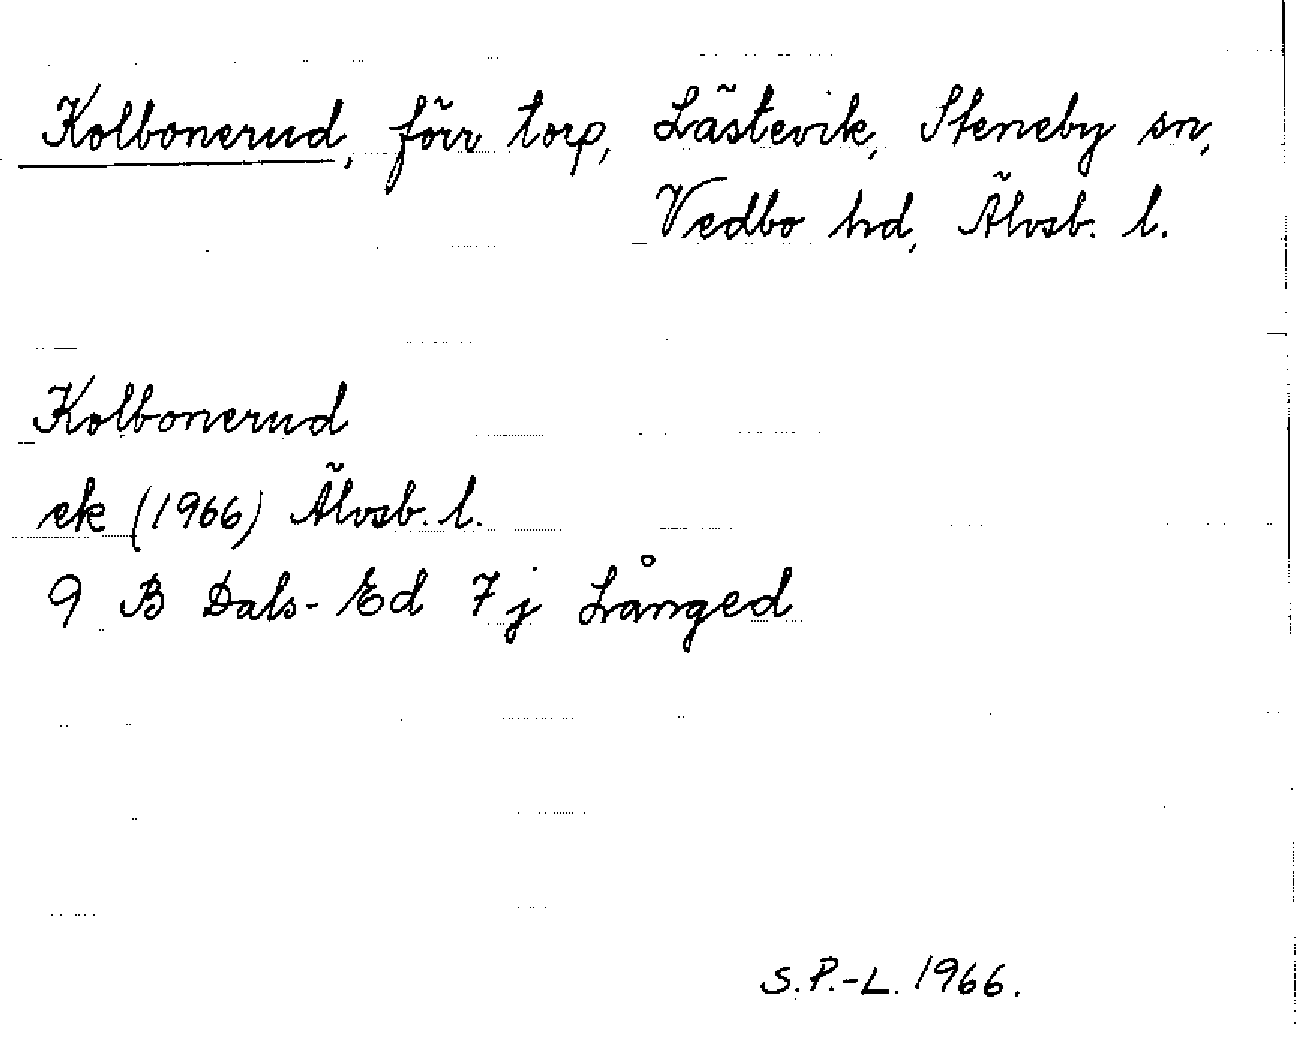 Kolbonerud, förr torp, Lästevik, Steneby sn,
Vedbo hd, Älvsb. l.
Kolbonerud
ek (1966) Älvsb. l.
9 B Dals-Ed 7 j Långed
S.P.-L. 1966.